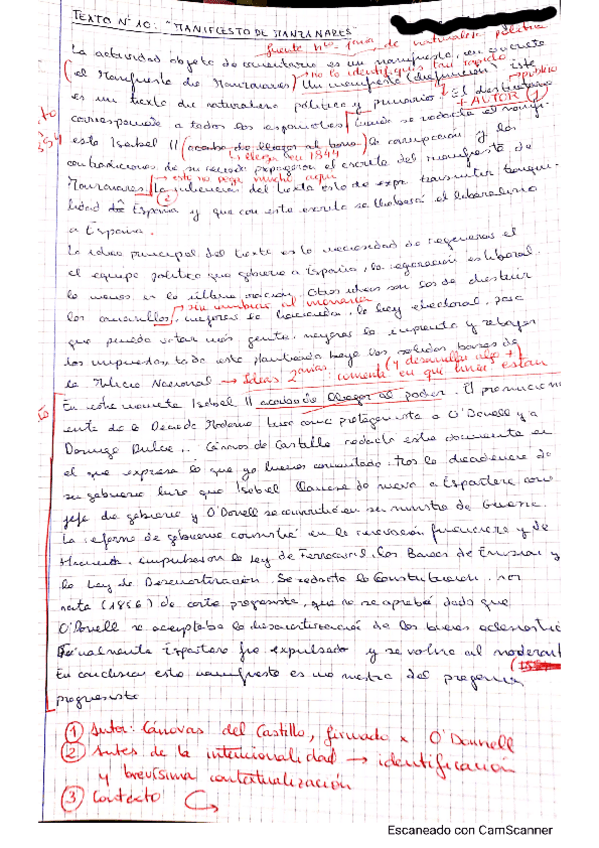 TEXTO Nº 10: "MANIFIESTO DE MANZANARES"
fuente hca. de naturaleza política
La actividad objeto de comentario es un manifiesto, en concreto
(el Manifiesto de Manzanares) no lo identifiquéis tan rápido Un manifiesto (definición) Este
es un texto de naturaleza política y primario. El destinatario público
+ AUTOR (1)
corresponde a todos los españoles. se redacta el manifi-
esto Isabel II (acaba de llegar al trono) la corrupción y las
Llega en 1844
contradicciones de su reinado propagaron el escrito del manifiesto de
Manzanares. esto no pega mucho aquí La intención del texto es la de transmitir tranqui-
(2)
lidad a España y que con este escrito se el liberalismo
a España.
La idea principal del texto es la necesidad de regenerar el
el equipo político que gobierna a España, la regeneración es liberal.
lo vemos en la última oración. Otras ideas son las de destruir
No nombráis al monarca
las camarillas, mejoras la hacienda, la ley electoral, para
que pueda votar más gente, mejorar la imprenta y rebajar
los impuestos, todo esto planteado bajo las sólidas bases de
la Milicia Nacional → Ideas 2arias (y desarrolla algo +)
comenta en qué líneas están
En este momento Isabel II acaba de llegar al poder. El pronunciami-
ento de la Década Moderada tuvo como protagonista a O'Donell y a
Domingo Dulce. Cánovas de Castillo redacta este documento en
el que expresa lo que ya hemos comentado. Tras la decadencia de
su gobierno hizo que Isabel llamase de nuevo a Espartero como
jefe de gobierno y O'Donell se convirtió en su ministro de Guerra.
La reforma de gobierno consistió en la renovación financiera y de
Hacienda, impulsaron la Ley de Ferrocarril, los Bancos de Emisión y
la Ley de Desamortización. Se redactó la Constitución non
nata (1856) de corte progresista, que no se aprobó dado que
O'Donell no aceptaba la desamortización de los bienes eclesiástic
Finalmente Espartero fue expulsado y se volvió al moderant
En conclusión este manifiesto es una muestra del programa
progresista
(1) Autor: Cánovas del Castillo, firmado x O'Donnell
(2) Antes de la intencionalidad → identificación
y brevísima contextualización
(3) Contexto
Escaneado con CamScanner